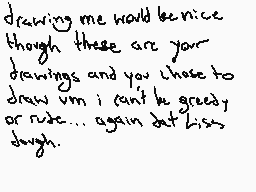 drawing me would be nice
though these are your
drawings and you chose to
draw um i can't be greedy
or rude... again dat bish
dough.